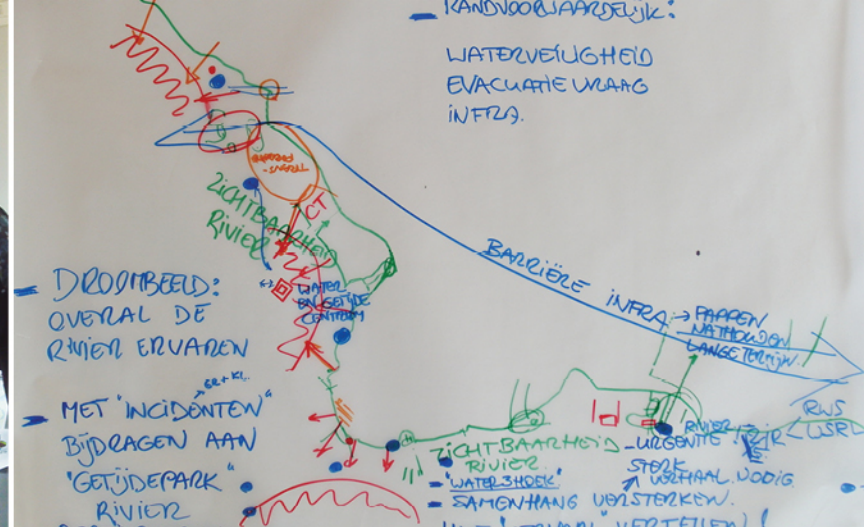 RANDVOORWAARDELIJK:
WATERVEILIGHEID
EVACUATIEVRAAG
INFRA.
ZICHTBAARHEID
RIVIER
CT
WATER
EN GETIJDE
CENTRUM
BARRIÈRE INFRA
→ PAPPEN
NATHOUDEN
LANGE TERMIJN.
- DROOMBEELD:
OVERAL DE
RIVIER ERVAREN
GR + KL..
- MET "INCIDENTEN"
BIJDRAGEN AAN
"GETIJDEPARK"
RIVIER
ZICHTBAARHEID
RIVIER
- "WATERSHOEK"
- SAMENHANG VERSTERKEN.
- URGENTIE
STERK
VERHAAL NODIG.
RIVIER
RWS
WSRL
"VERHAAL" VERTELLEN!